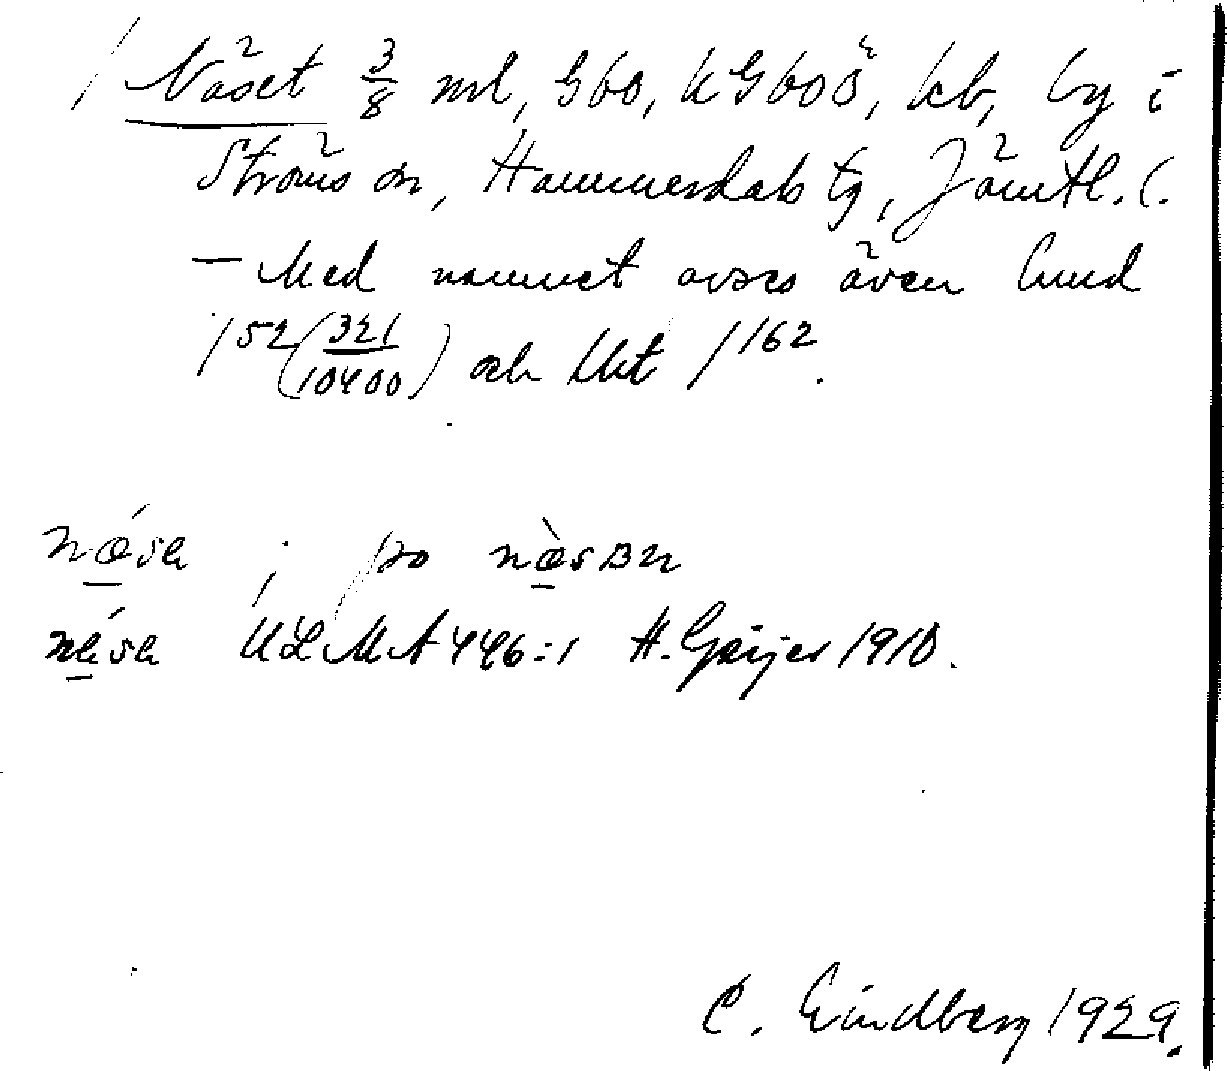 / Näset 3/8 ml, Gbo, kGboö, kb, by i
Ströms sn, Hammerdals tg, Jämtl. l.
— Med namnet avses även lmd
1⁵²(321/10400) och lht 1¹⁶².
nǽsɑ ; po næ̀sʙn
nésɑ ULMA 446:1 H. Geijer 1910.
C. Lindberg 1929.